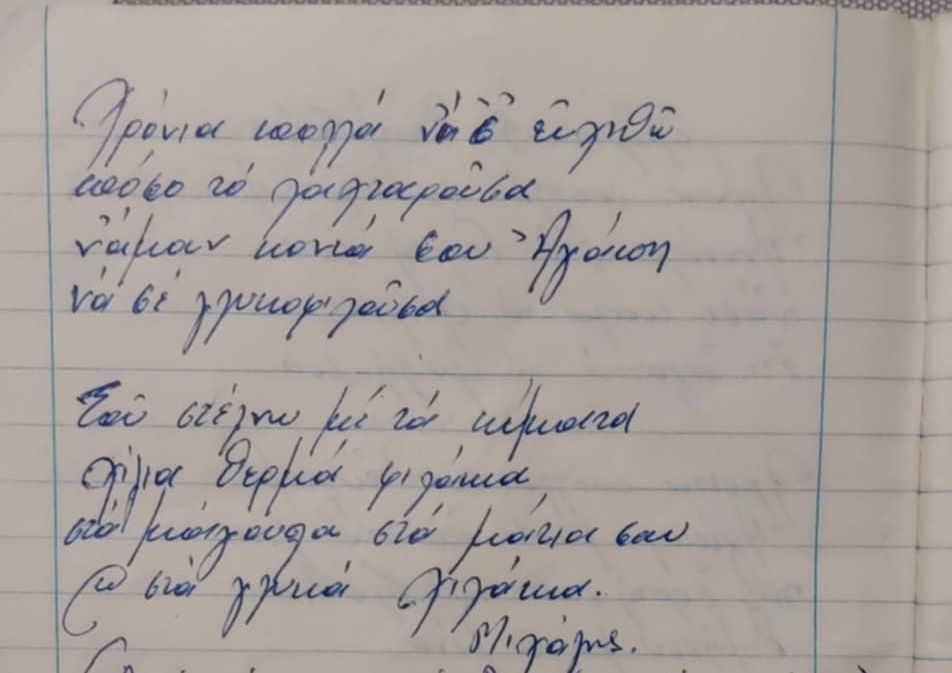 Χρόνια πολλά νά σ' εὐχηθῶ
πόσο τό λαχταροῦσα
νἄμαν κοντά σου Ἀγάπη
νά σέ γλυκοφιλοῦσα
Σοῦ στέλνω μέ τά κύματα
χίλια θερμά φιλάκια
στά μάγουλα στά μάτια σου
στά γλυκά χιλάκια.
Μιχάλης.